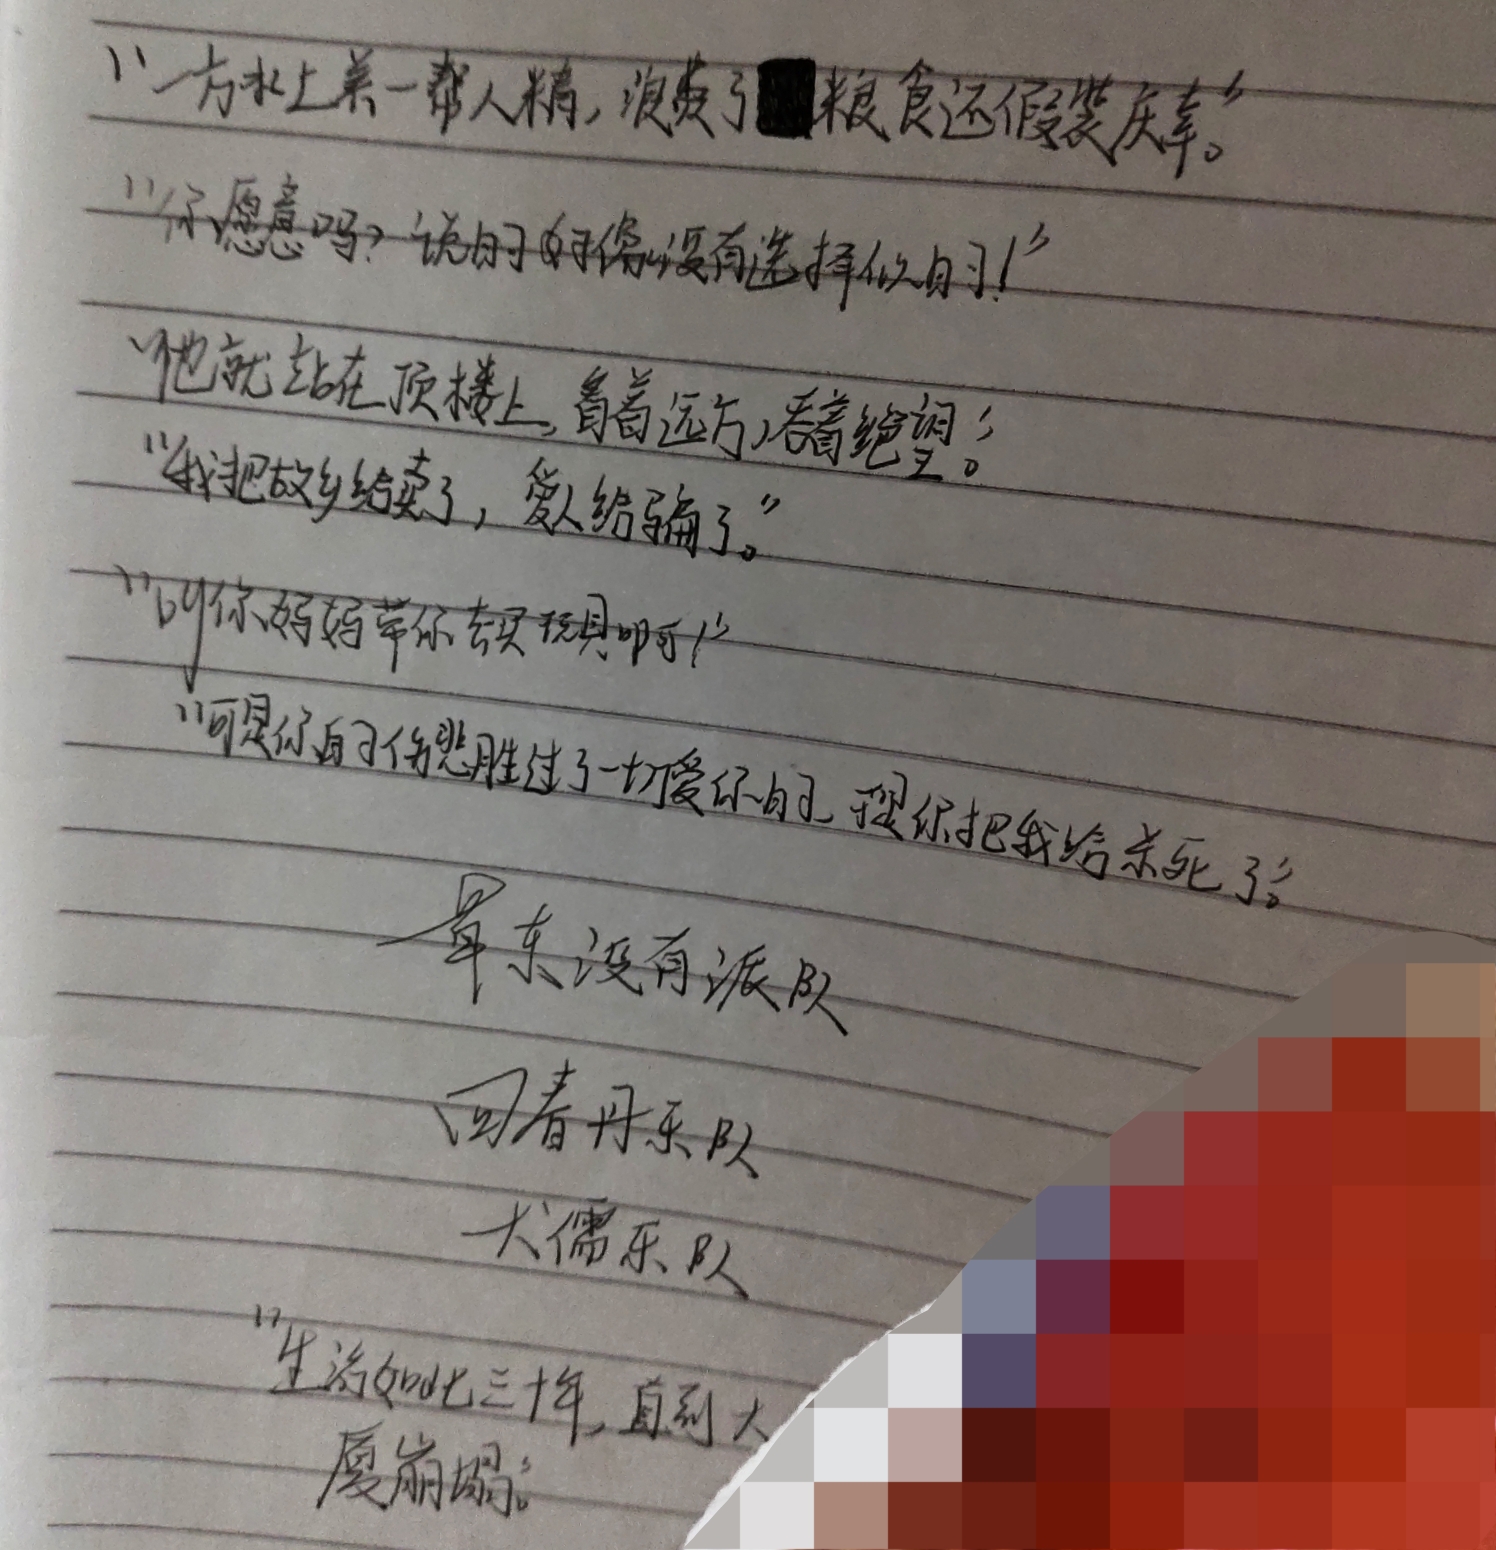 “一方水土养一帮人精，浪费了粮食还假装庆幸。”
“你愿意吗？说的好像没有选择似的！”
“他就站在顶楼上，看着远方，看着绝望。”
“我把故乡给卖了，爱人给骗了。”
“叫你妈妈带你去买玩具啊！”
“可是你的伤悲胜过了一切爱你的 可是你把我给杀死了。”
草东没有派队
回春丹乐队
犬儒乐队
“生活如此三十年，直到大
厦崩塌。”